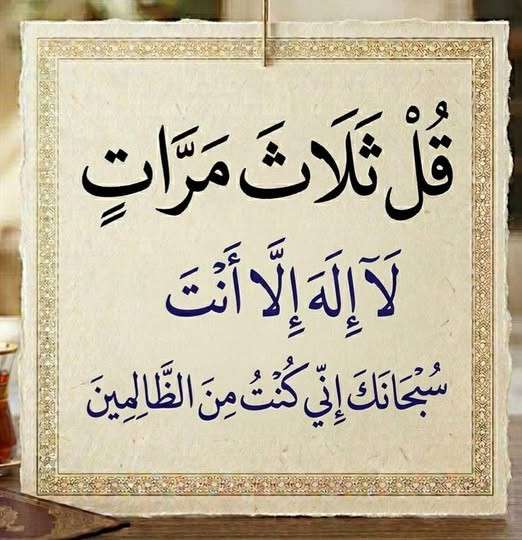 قُلْ ثَلَاثَ مَرَّاتٍ
لَآ إِلَهَ إِلَّا أَنْتَ
سُبْحَانَكَ إِنِّي كُنْتُ مِنَ الظَّالِمِينَ